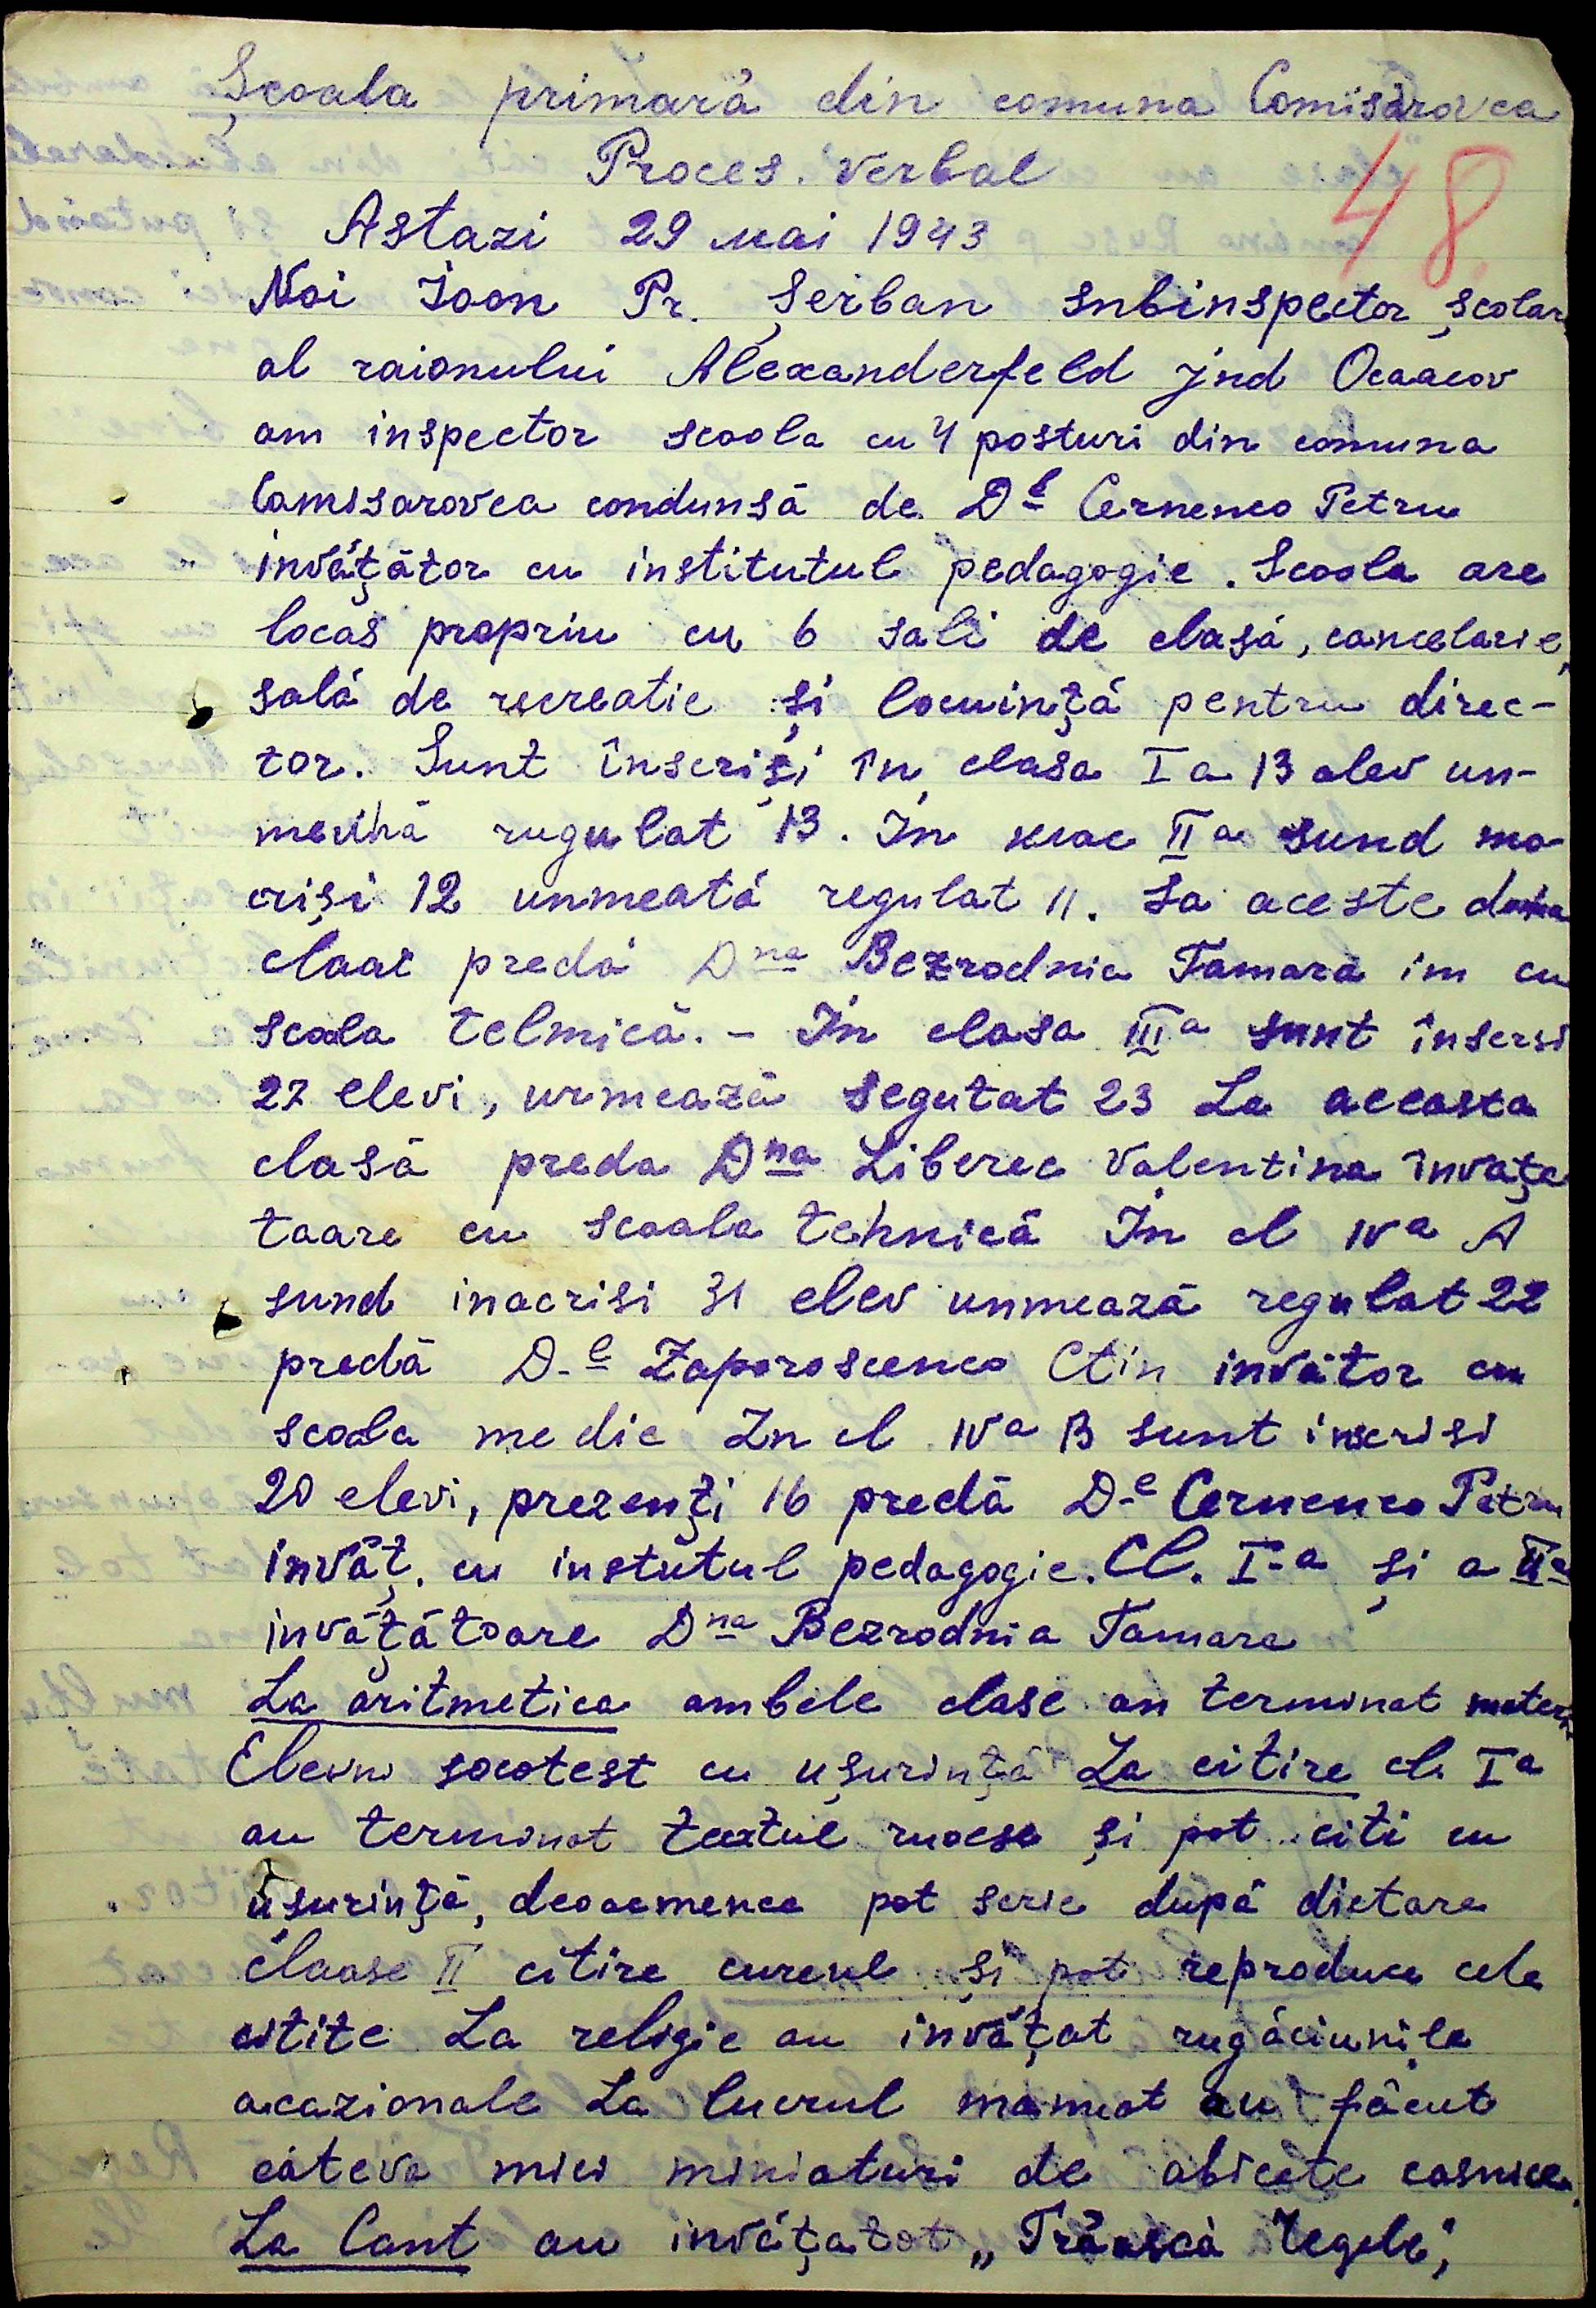 Școala primară din comuna Comisarovca
Proces. Verbal
48
Astazi 29 mai 1943
Noi Ioon Pr. Șerban subinspector școlar
al raionului Alexanderfeld jud Ocaacov
am inspector scoola cu 4 posturi din comuna
Camisarovca condunsă de Dl Cernenco Petru
invățător cu institutul pedagogic. Scoola are
locas propriu cu 6 sali de clasă, cancelarie,
sală de recreatie și locuință pentru direc-
tor. Sunt înscriși în clasa I a 13 elev un-
mevihă rugulat 13. În II a sund ma-
criși 12 unmeată regulat 11. La aceste
claai predă Dna Bezrodnia Tamara im cu
scoala telmică. - În clasa III a sunt însersi
27 elevi, urmează segutat 23 La aceasta
clasă preda Dna Liberec Valentina învațe
toare cu scoala tehnică În cl IV a A
sund inacrisi 31 elev unmează regulat 22
predă D-l Zaporoscenco Ctin invător cu
scoala medie In cl IV a B sunt inscrisi
20 elevi, prezenți 16 predă D-l Cernenco Petru
invăț. cu instutul pedagogic. Cl. I-a și a II a
invățătoare Dna Bezrodnia Tamara
La aritmetica ambele clase au terminat materi
Elevni socotest cu ușurință La citire cl. I a
au terminat textul ruoese și pot citi cu
usurință, deoaemenea pot scrie după dictare
claase II citire cureul și pot reproduce cele
citite La religie au invățat rugăciunile
acazionale La lucrul mamuat au făcut
câteva mici miniaturi de abicete casnice.
La Cant au invățatot „Trăască Regele",